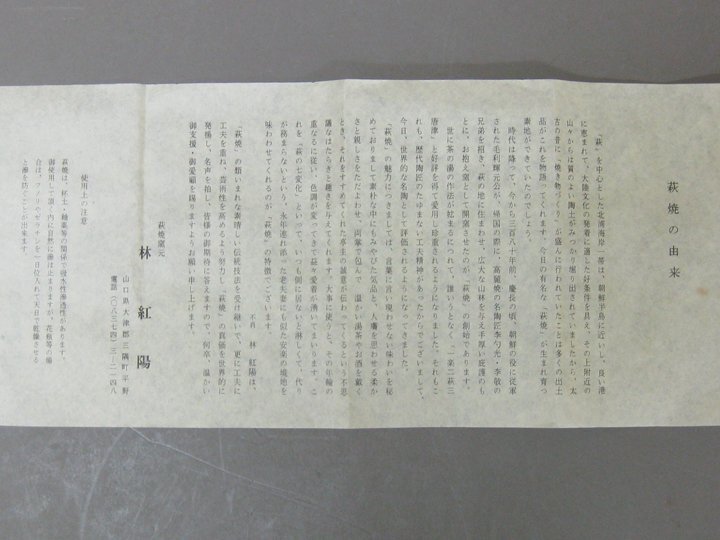 萩焼の由来
「萩」を中心とした北浦海岸一帯は、朝鮮半島に近いし、良い港
に恵まれて、大陸文化の発着に適した好条件を具え、その上附近の
山々からは質のよい陶土がみつかり堀り出されていましたから、太
古の昔に「焼き物づくり」が盛んに行われていたことは多くの出土
品がこれを物語ってくれます。今日の有名な「萩焼」が生まれ育つ
素地ができていたのでしょう。
時代は降って、今から三百八十年前、慶長の頃、朝鮮の役に従軍
された毛利輝元公が、帰国の際に、高麗焼の名陶匠李勺光、李敬の
兄弟を招き、萩の地に住まわせ、広大な山林を与え手厚い庇護のも
とに、お抱え窯として開窯させたのが、「萩焼」の創始であります。
世に茶の湯の作法が始まるにつれて、誰いうとなく、一楽二萩三
唐津、と好評を得て愛用し重宝されるようになりました。それもこ
れも、歴代陶匠のたゆまない工夫精神があったからでございまして、
今日、世界的な名陶として評価されるようになってきました。
「萩焼」の魅力につきましては、言葉に言い現わせない味わいを秘
めておりまして素朴な中にもみやびた気品と、人膚を思わせる柔か
さと親しさをただよわせ、両掌で包んで、温かい湯茶やお酒を戴く
とき、それをすすめてくれた亭主の誠意が伝わってくるという不思
議なはたらきと趣きを与えてくれます。大事に使うと、その年輪の
重なるに従い、色調が変ってきて益々愛着が湧いてまいります。こ
れを「萩の七変化」といって、いつも側に居ないと淋しくて、代り
が務まらないという、永年連れ添った老夫妻にも似た安楽の境地を
味わわせてくれるのが「萩焼」の特徴でございます。
不肖 林 紅陽は、
「萩焼」の類いまれな素晴しい伝統技法を受け継いで、更に工夫に
工夫を重ね、芸術性を高めるよう努力し「萩焼」の真価を世界的に
発揚し、名声を拍し、皆様の御期待に答えますので、何卒、温かい
御支援・御愛顧を賜りますようお願い申し上げます。
萩焼窯元
林 紅陽
山口県大津郡三隅町平野
電話(〇八三七四)三-二一四八
使用上の注意
萩焼は、杯土・釉薬等の関係で吸水性滲透性があります。
御使用して頂く内に自然に滲は止まりますが、花瓶等の場
合は、フノリかゼラチンを一日位入れて天日で乾燥させる
と滲を防ぐことが出来ます。